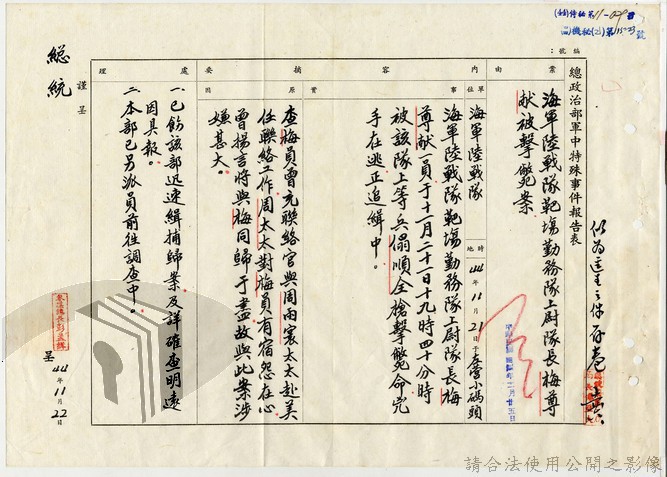 總政治部軍中特殊事件報告表
編號：
案由
海軍陸戰隊靶場勤務隊上尉隊長梅尊
献被擊斃案
單位
海軍陸戰隊
時地
44年11月21日于左營小碼頭
內容摘要
事實
海軍陸戰隊靶場勤務隊上尉隊長梅
尊献一員于十一月二十一日十九時四十分時
被該隊上等兵
順全槍擊斃命兇
手在逃正追緝中。
原因
查梅員曾充聯絡官與周雨寰太太赴美
任聯絡工作周太太對梅員有宿怨在心
曾揚言將與梅同歸于盡故與此案涉
嫌甚大。
處理
一、已飭該部迅速緝捕歸案及詳確查明遠
因具報。
二、本部已另派員前往調查中。
謹呈
總統
參謀總長彭孟緝
呈
44年11月22日
請合法使用公開之影像